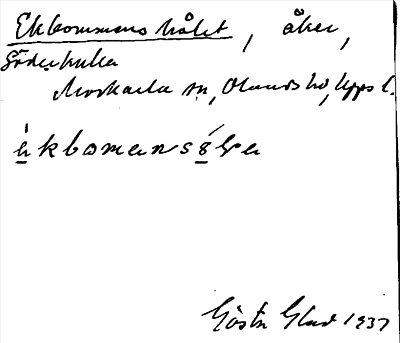 Ekbommens hålet, åker,
Söderkulla
Morkarla sn, Olands hd, Upps l.
Gösta Glad 1937